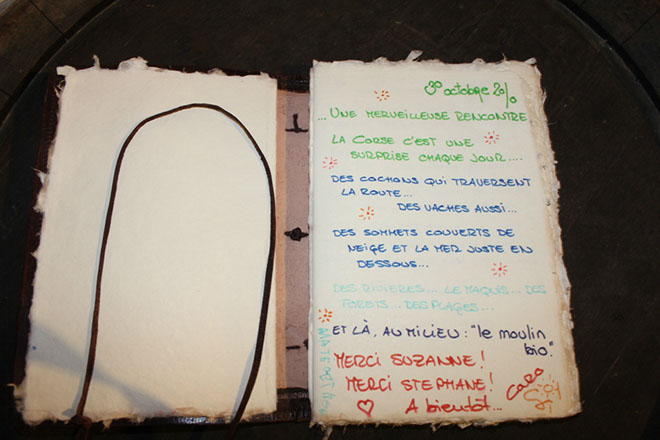 30 octobre 2010
... UNE MERVEILLEUSE RENCONTRE
LA CORSE C'EST UNE
SURPRISE CHAQUE JOUR....
DES COCHONS QUI TRAVERSENT
LA ROUTE...
DES VACHES AUSSI...
DES SOMMETS COUVERTS DE
NEIGE ET LA MER JUSTE EN
DESSOUS...
DES RIVIERES... LE MAQUIS... DES
FORETS... DES PLAGES...
ET LÀ, AU MILIEU : "le moulin
bio".
MERCI SUZANNE !
MERCI STEPHANE !
A bientôt...
Caro